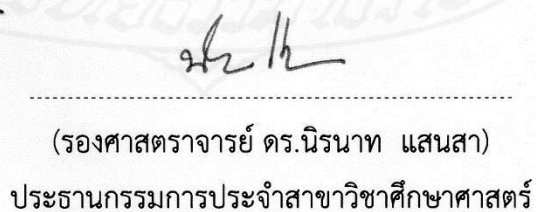 (รองศาสตราจารย์ ดร.นิรนาท แสนสา)
ประธานกรรมการประจำสาขาวิชาศึกษาศาสตร์